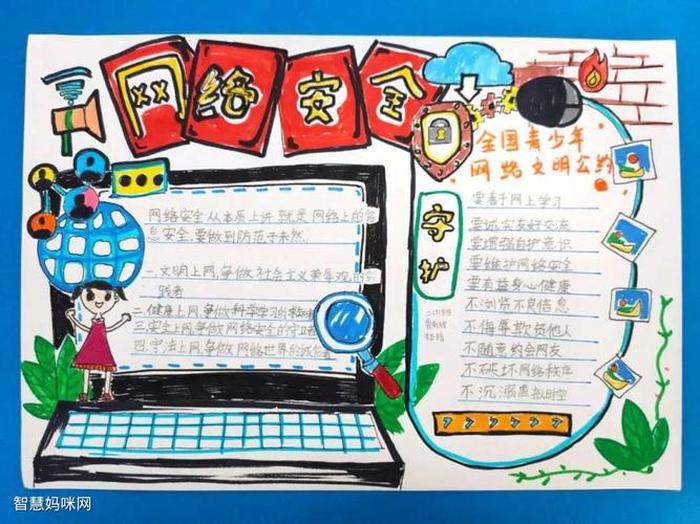 网络安全
网络安全从本质上讲就是网络上的信
息安全.要做到防范于未然.
一.文明上网,争做社会主义荣辱观的实
践者
二.健康上网,争做科学学习的
三.安全上网,争做网络安全的守卫者
四.守法上网,争做网络世界的诚信
全国青少年
网络文明公约
守护
要善于网上学习
要诚实友好交流
要增强自护意识
要维护网络安全
要有益身心健康
不浏览不良信息
不侮辱欺负他人
不随意约会网友
不破坏网络秩序
不沉溺虚拟时空
智慧妈咪网